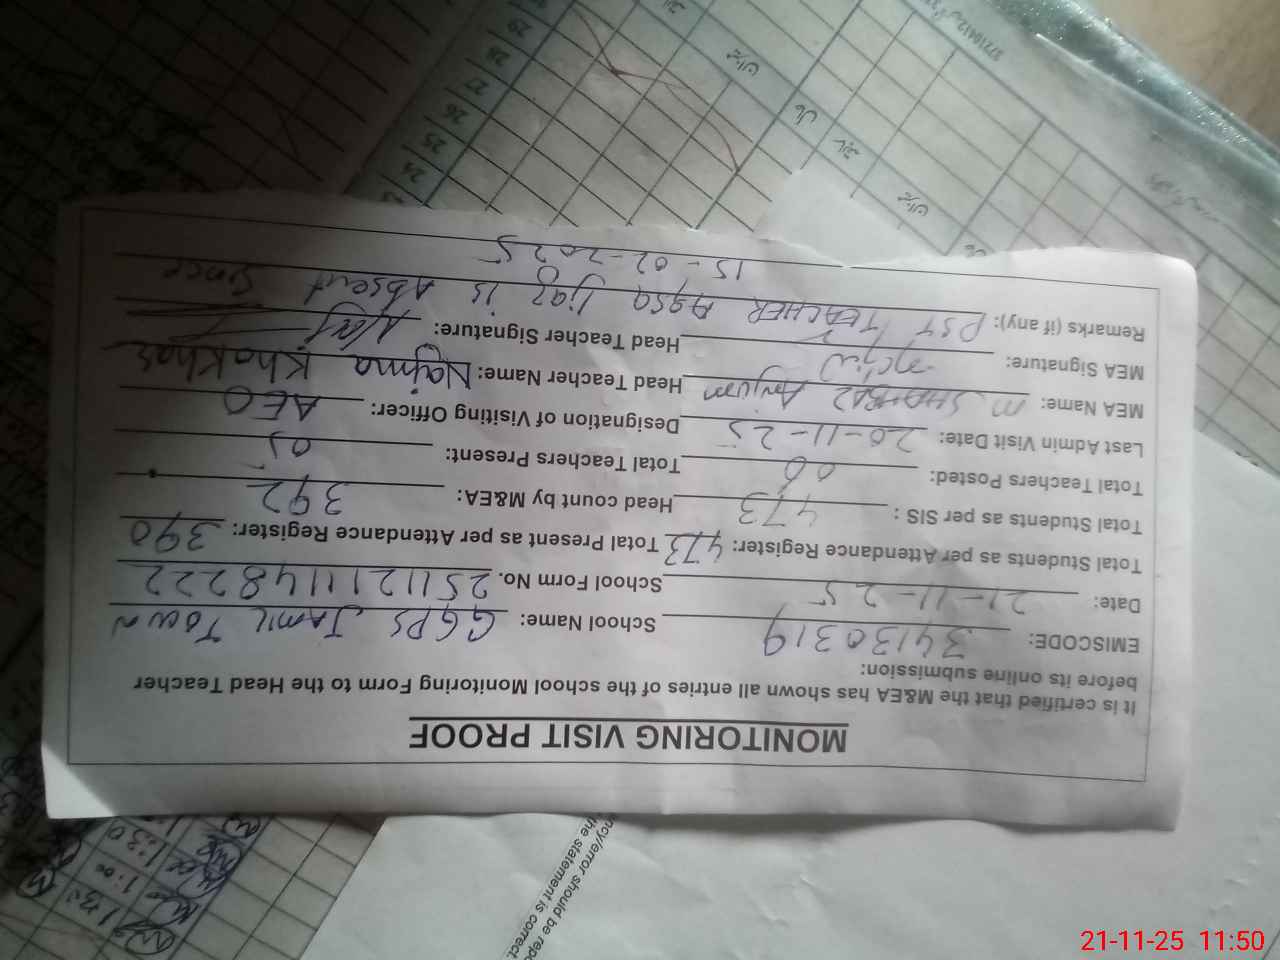 MONITORING VISIT PROOF
It is certified that the M&EA has shown all entries of the school Monitoring Form to the Head Teacher
before its online submission:
EMISCODE: 34130319 School Name: GGPS JAMIL TOWN
Date: 21-11-25 School Form No. 2511211148222
Total Students as per Attendance Register: 473 Total Present as per Attendance Register: 390
Total Students as per SIS : 473 Head count by M&EA: 392
Total Teachers Posted: 06 Total Teachers Present: 05
Last Admin Visit Date: 20-11-25 Designation of Visiting Officer: AEO
MEA Name: M. SHAHBAZ Anjum Head Teacher Name: Najma Khokhar
MEA Signature: Head Teacher Signature:
Remarks (if any): PST TEACHER Aqsa Ijaz is Absent Since
15-02-2025
ncy/error should be repo
the statement is correct.
23
24
25
26
27
28
29
1:30
1:00
1:30
21-11-25 11:50